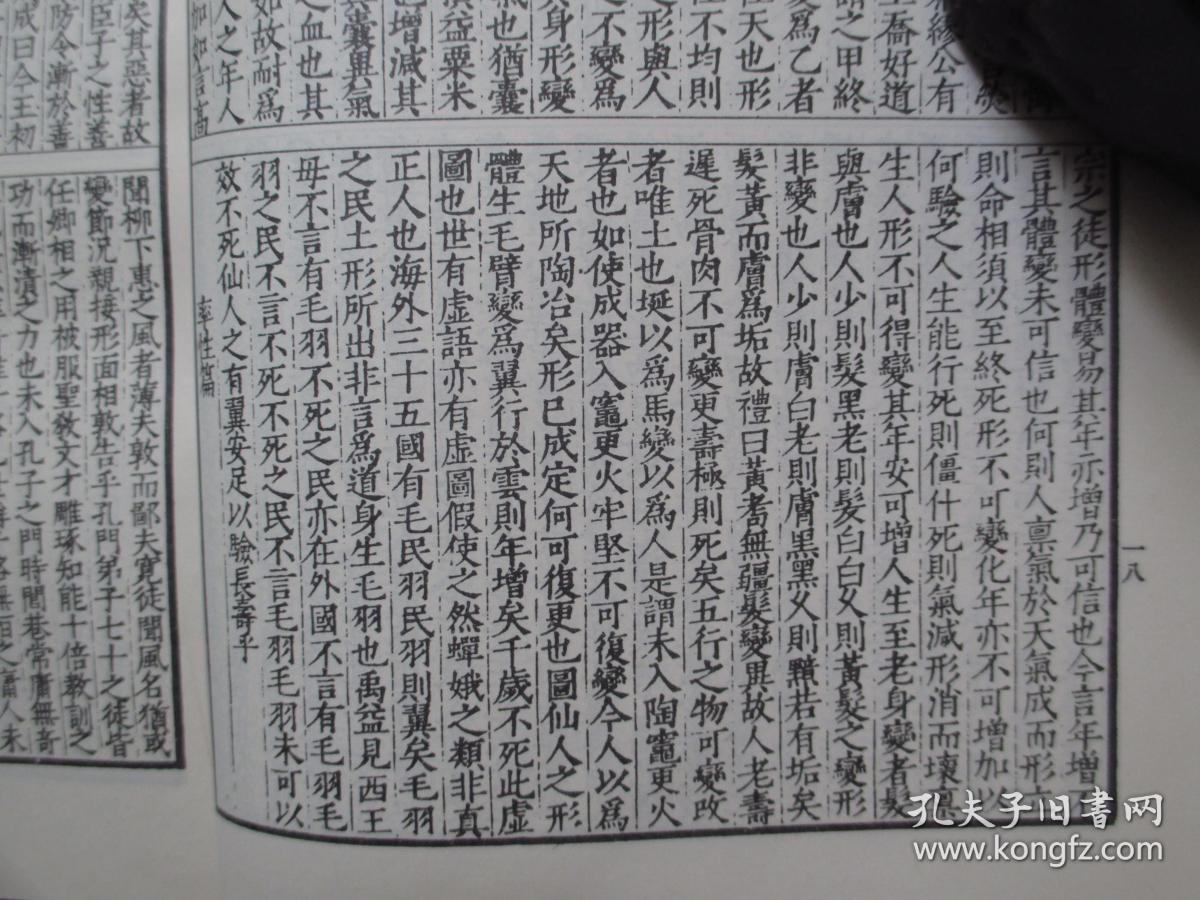 繆公有
喬好道
謂之甲終
變爲乙者
天也形
性不均則
之形與人
不變爲
身形變
也猶囊
益粟米
也增減其
其囊異氣
之血也其
如故耐爲
人之年人
宗之徒形體變易其年亦增乃可信也今言年增
言其體變未可信也何則人禀氣於天氣成而形
則命相須以至終死形不可變化年亦不可增加以
何驗之人生能行死則僵仆死則氣減形消而壞
生人形不可得變其年安可增人生至老身變者髮
與膚也人少則髮黑老則髮白白久則黃髮之變形
非變也人少則膚白老則膚黑黑久則黯若有垢矣
髮黃而膚爲垢故禮曰黃耇無疆髮變異故人老壽
遲死骨肉不可變更壽極則死矣五行之物可變改
者唯土也埏以爲馬變以爲人是謂未入陶竈更火
者也如使成器入竈更火牢堅不可復變今人以爲
天地所陶冶矣形已成定何可復更也圖仙人之形
體生毛臂變爲翼行於雲則年增矣千歲不死此虛
圖也世有虛語亦有虛圖假使之然蟬娥之類非真
正人也海外三十五國有毛民羽民羽則翼矣毛羽
之民土形所出非言爲道身生毛羽也禹益見西王
母不言有毛羽不死之民亦在外國不言有毛羽毛
羽之民不言不死不死之民不言毛羽毛羽未可以
效不死仙人之有翼安足以驗長壽乎
率性篇
一八
矣其惡者故
臣子之性善
防令漸於善
成曰今王初
聞柳下惠之風者薄夫敦而鄙夫寬徒聞風名猶或
變節況親接形面相敦告乎孔門弟子七十之徒皆
任卿相之用被服聖教文才雕琢知能十倍教訓之
功而漸漬之力也未入孔子之門時閭巷常庸無奇
孔夫子旧书网
www.kongfz.com